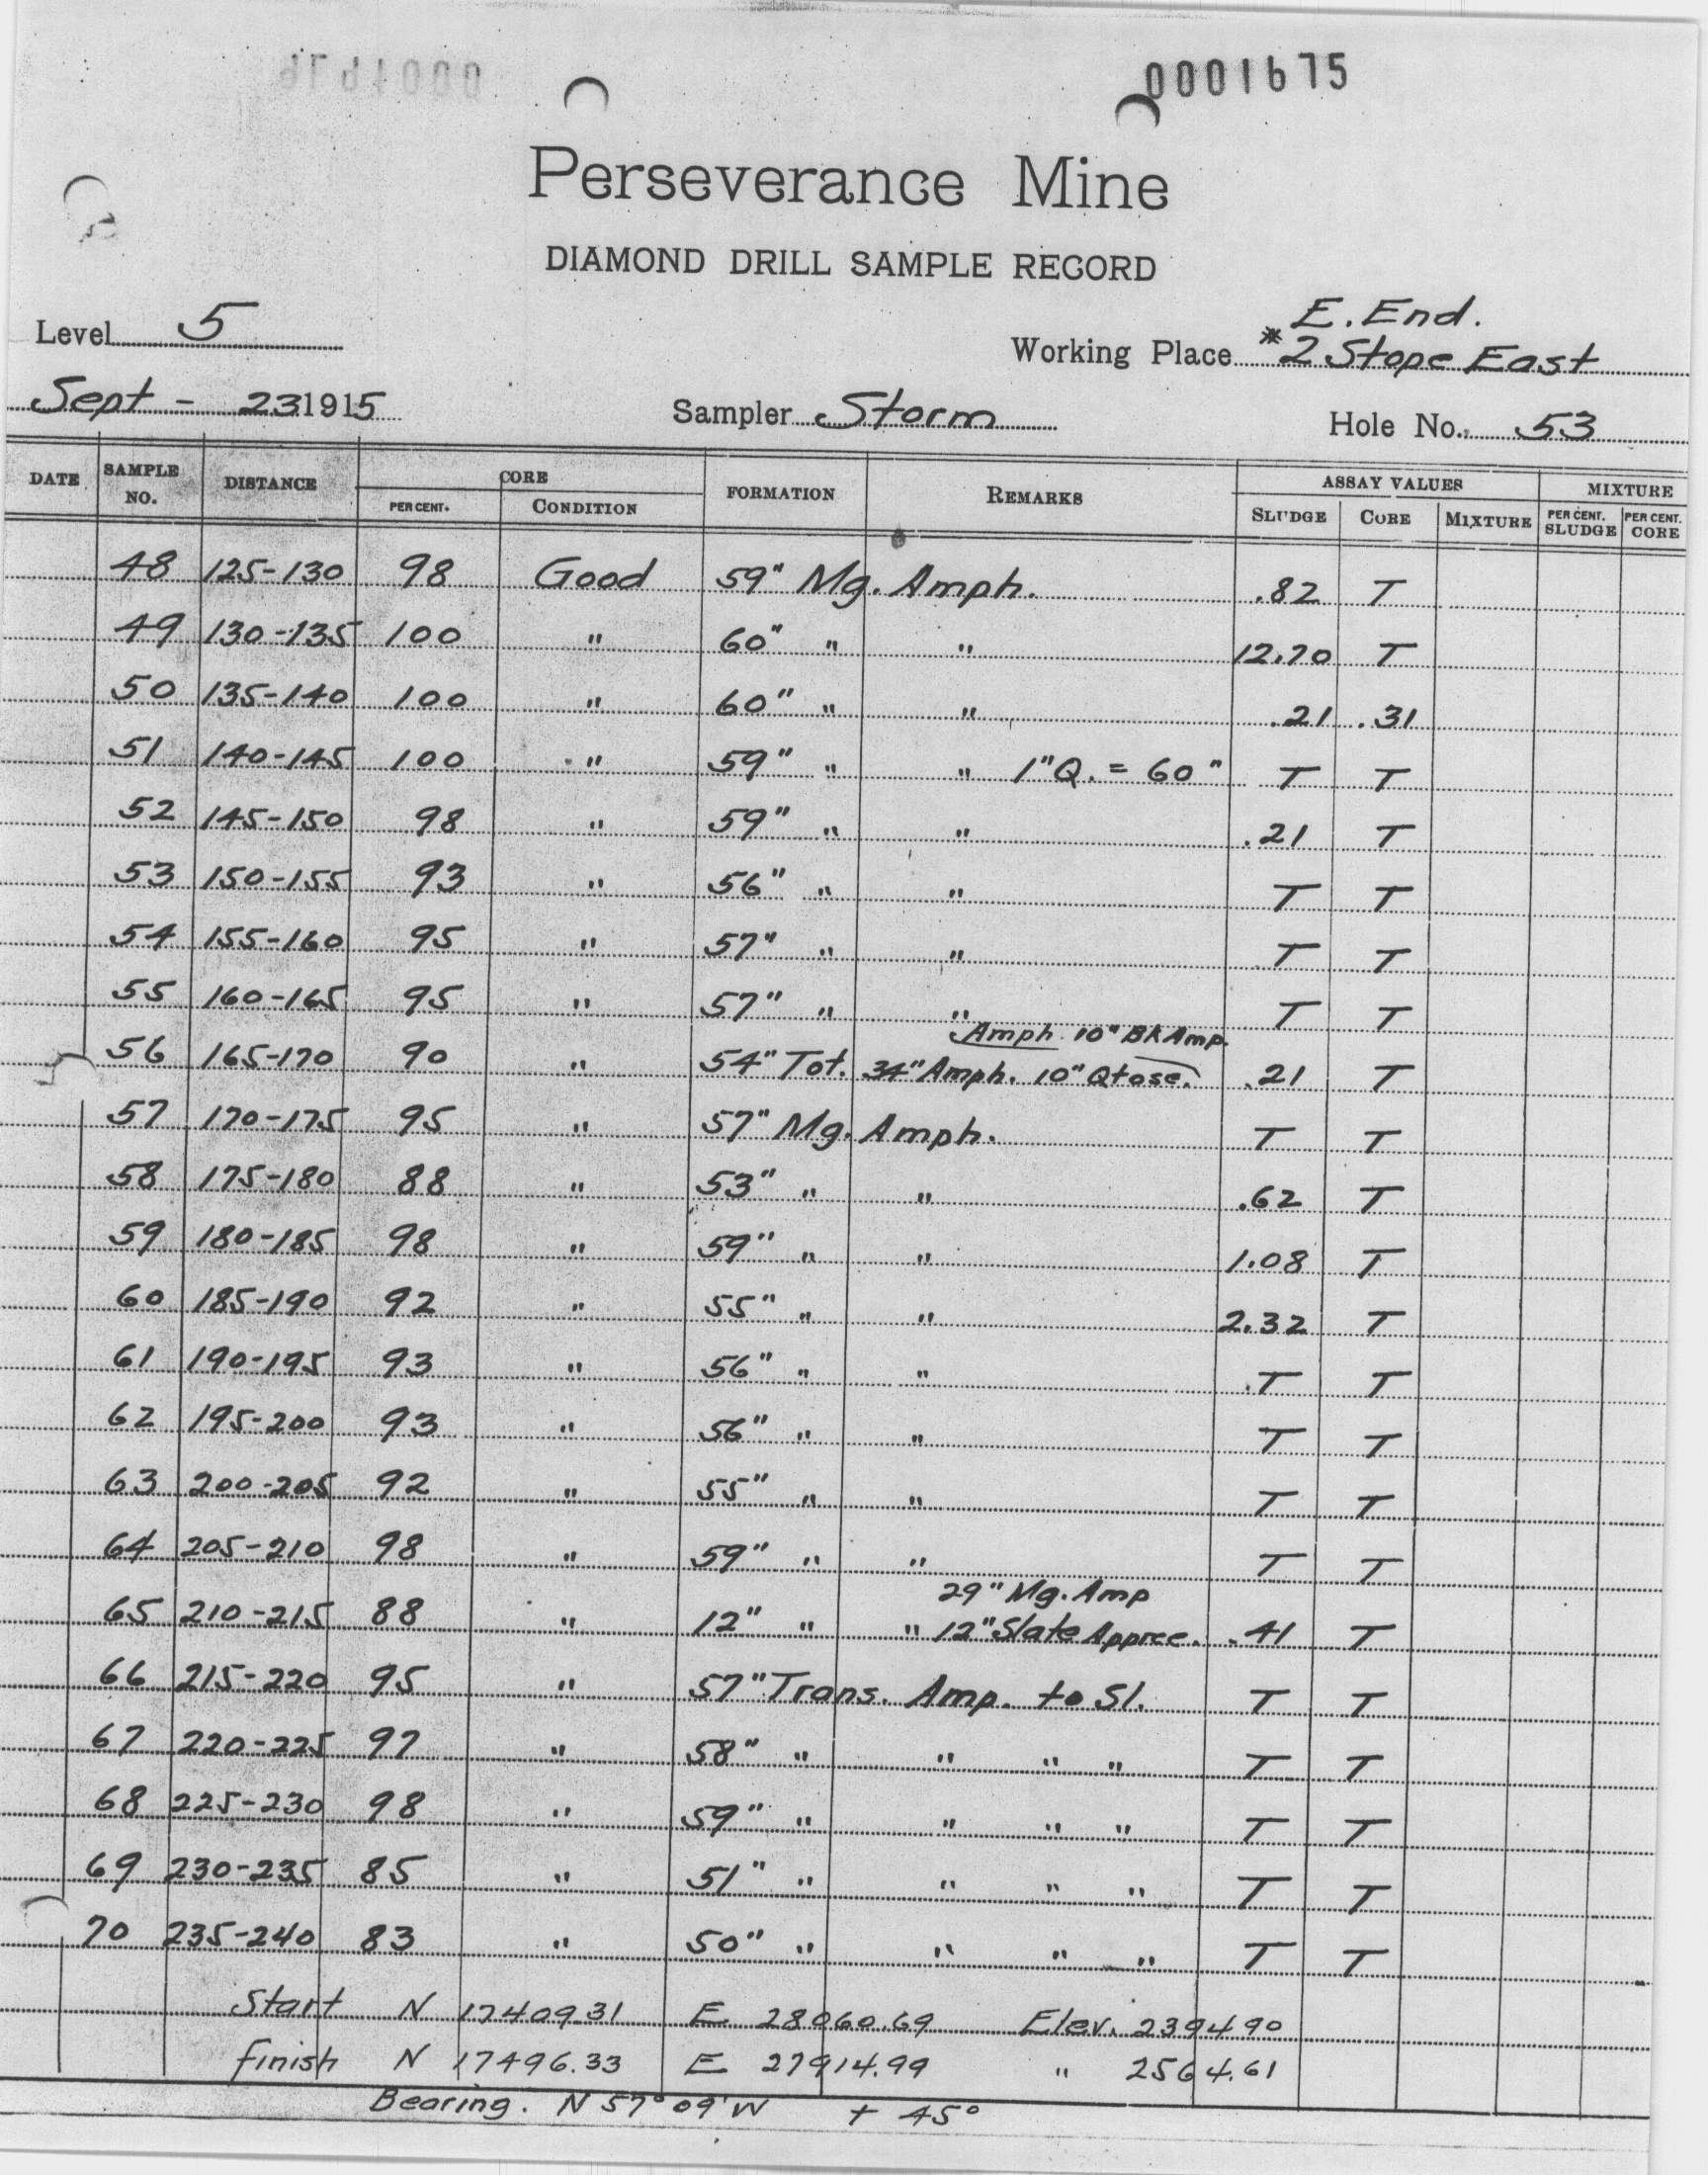 0001675
Perseverance Mine
DIAMOND DRILL SAMPLE RECORD
E. End.
Level 5 Working Place #2 Stope East
Sept - 23 1915 Sampler Storm Hole No. 53
DATE SAMPLE NO. DISTANCE CORE FORMATION REMARKS ASSAY VALUES MIXTURE
PER CENT. CONDITION SLUDGE CORE MIXTURE PER CENT. SLUDGE PER CENT. CORE
48 125-130 98 Good 59" Mg. Amph. .82 T
49 130-135 100 " 60" " " 12.70 T
50 135-140 100 " 60" " " .21 .31
51 140-145 100 " 59" " " 1" Q. = 60" T T
52 145-150 98 " 59" " " .21 T
53 150-155 93 " 56" " " T T
54 155-160 95 " 57" " " T T
55 160-165 95 " 57" " " T T
Amph 10" Bk Amp.
56 165-170 90 " 54" Tot. 34" Amph. 10" Qtose. .21 T
57 170-175 95 " 57" Mg. Amph. T T
58 175-180 88 " 53" " " .62 T
59 180-185 98 " 59" " " 1.08 T
60 185-190 92 " 55" " " 2.32 T
61 190-195 93 " 56" " " T T
62 195-200 93 " 56" " " T T
63 200-205 92 " 55" " " T T
64 205-210 98 " 59" " " T T
29" Mg. Amp
65 210-215 88 " 12" " " 12" Slate Apprec. .41 T
66 215-220 95 " 57" Trans. Amp. to Sl. T T
67 220-225 97 " 58" " " " " T T
68 225-230 98 " 59" " " " " T T
69 230-235 85 " 51" " " " " T T
70 235-240 83 " 50" " " " " T T
Start N 17409.31 E 28060.69 Elev. 2394.90
finish N 17496.33 E 27914.99 " 2564.61
Bearing. N 57° 09' W + 45°